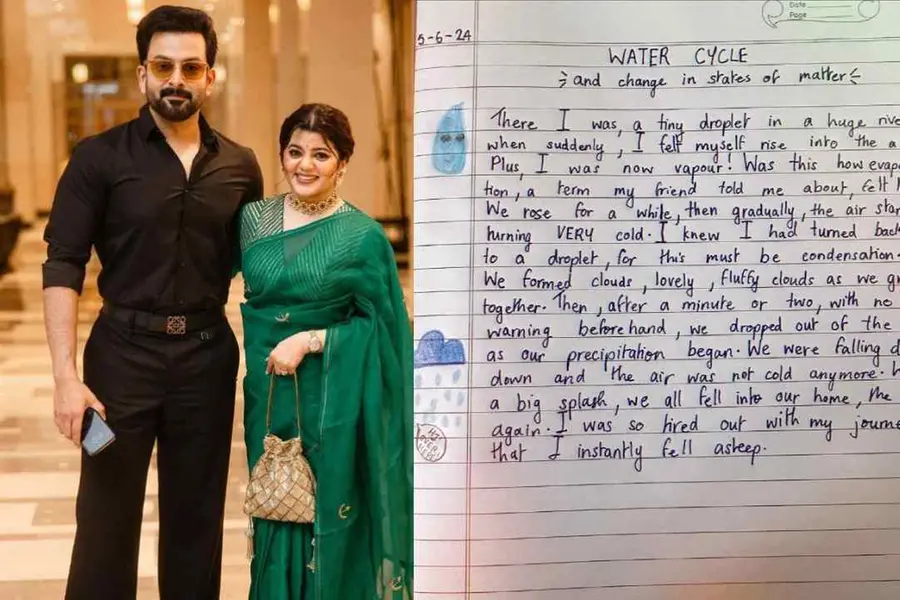 Date
Page
5-6-24
WATER CYCLE
and change in states of matter
There I was, a tiny droplet in a huge rive
when suddenly, I felt myself rise into the a
Plus, I was now vapour! Was this how evapo
tion, a term my friend told me about, felt l
We rose for a while, then gradually, the air star
turning VERY cold. I knew I had turned back
to a droplet, for this must be condensation.
We formed clouds, lovely, fluffy clouds as we gr
together. Then, after a minute or two, with no
warning beforehand, we dropped out of the
as our precipitation began. We were falling d
down and the air was not cold anymore.
a big splash, we all fell into our home, the
again. I was so tired out with my journe
that I instantly fell asleep.